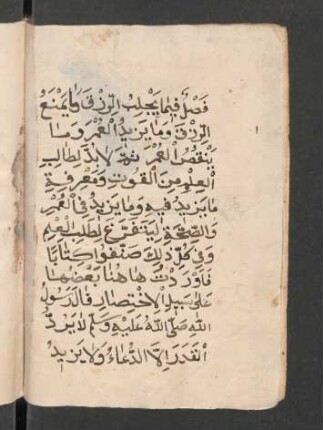 فَصْلٌ فِيمَا يَجْلِبُ الرِّزْقَ وَمَا يَمْنَعُ
الرِّزْقَ وَمَا يَزِيدُ الْعُمْرَ وَمَا
يَنْقُصُ الْعُمْرَ ثُمَّ لَابُدَّ لِطَالِبِ
الْعِلْمِ مِنَ الْقُوتِ وَمَعْرِفَةِ
مَا يَزِيدُ فِيهِ وَمَا يَزِيدُ فِي الْعُمْرِ
وَالصِّحَّةِ لِيَتَفَرَّغَ لِطَلَبِ الْعِلْمِ
وَفِي كُلِّ ذَلِكَ صَنَّفُوا كِتَابًا
فَأَوْرَدْتُ هَاهُنَا بَعْضَهَا
عَلَى سَبِيلِ الْاِخْتِصَارِ قَالَ رَسُولُ
اللهِ صَلَّى اللهُ عَلَيْهِ وَسَلَّمَ لَا يَرُدُّ
الْقَدَرَ اِلَّا الدُّعَاءُ وَلَا يَزِيدُ